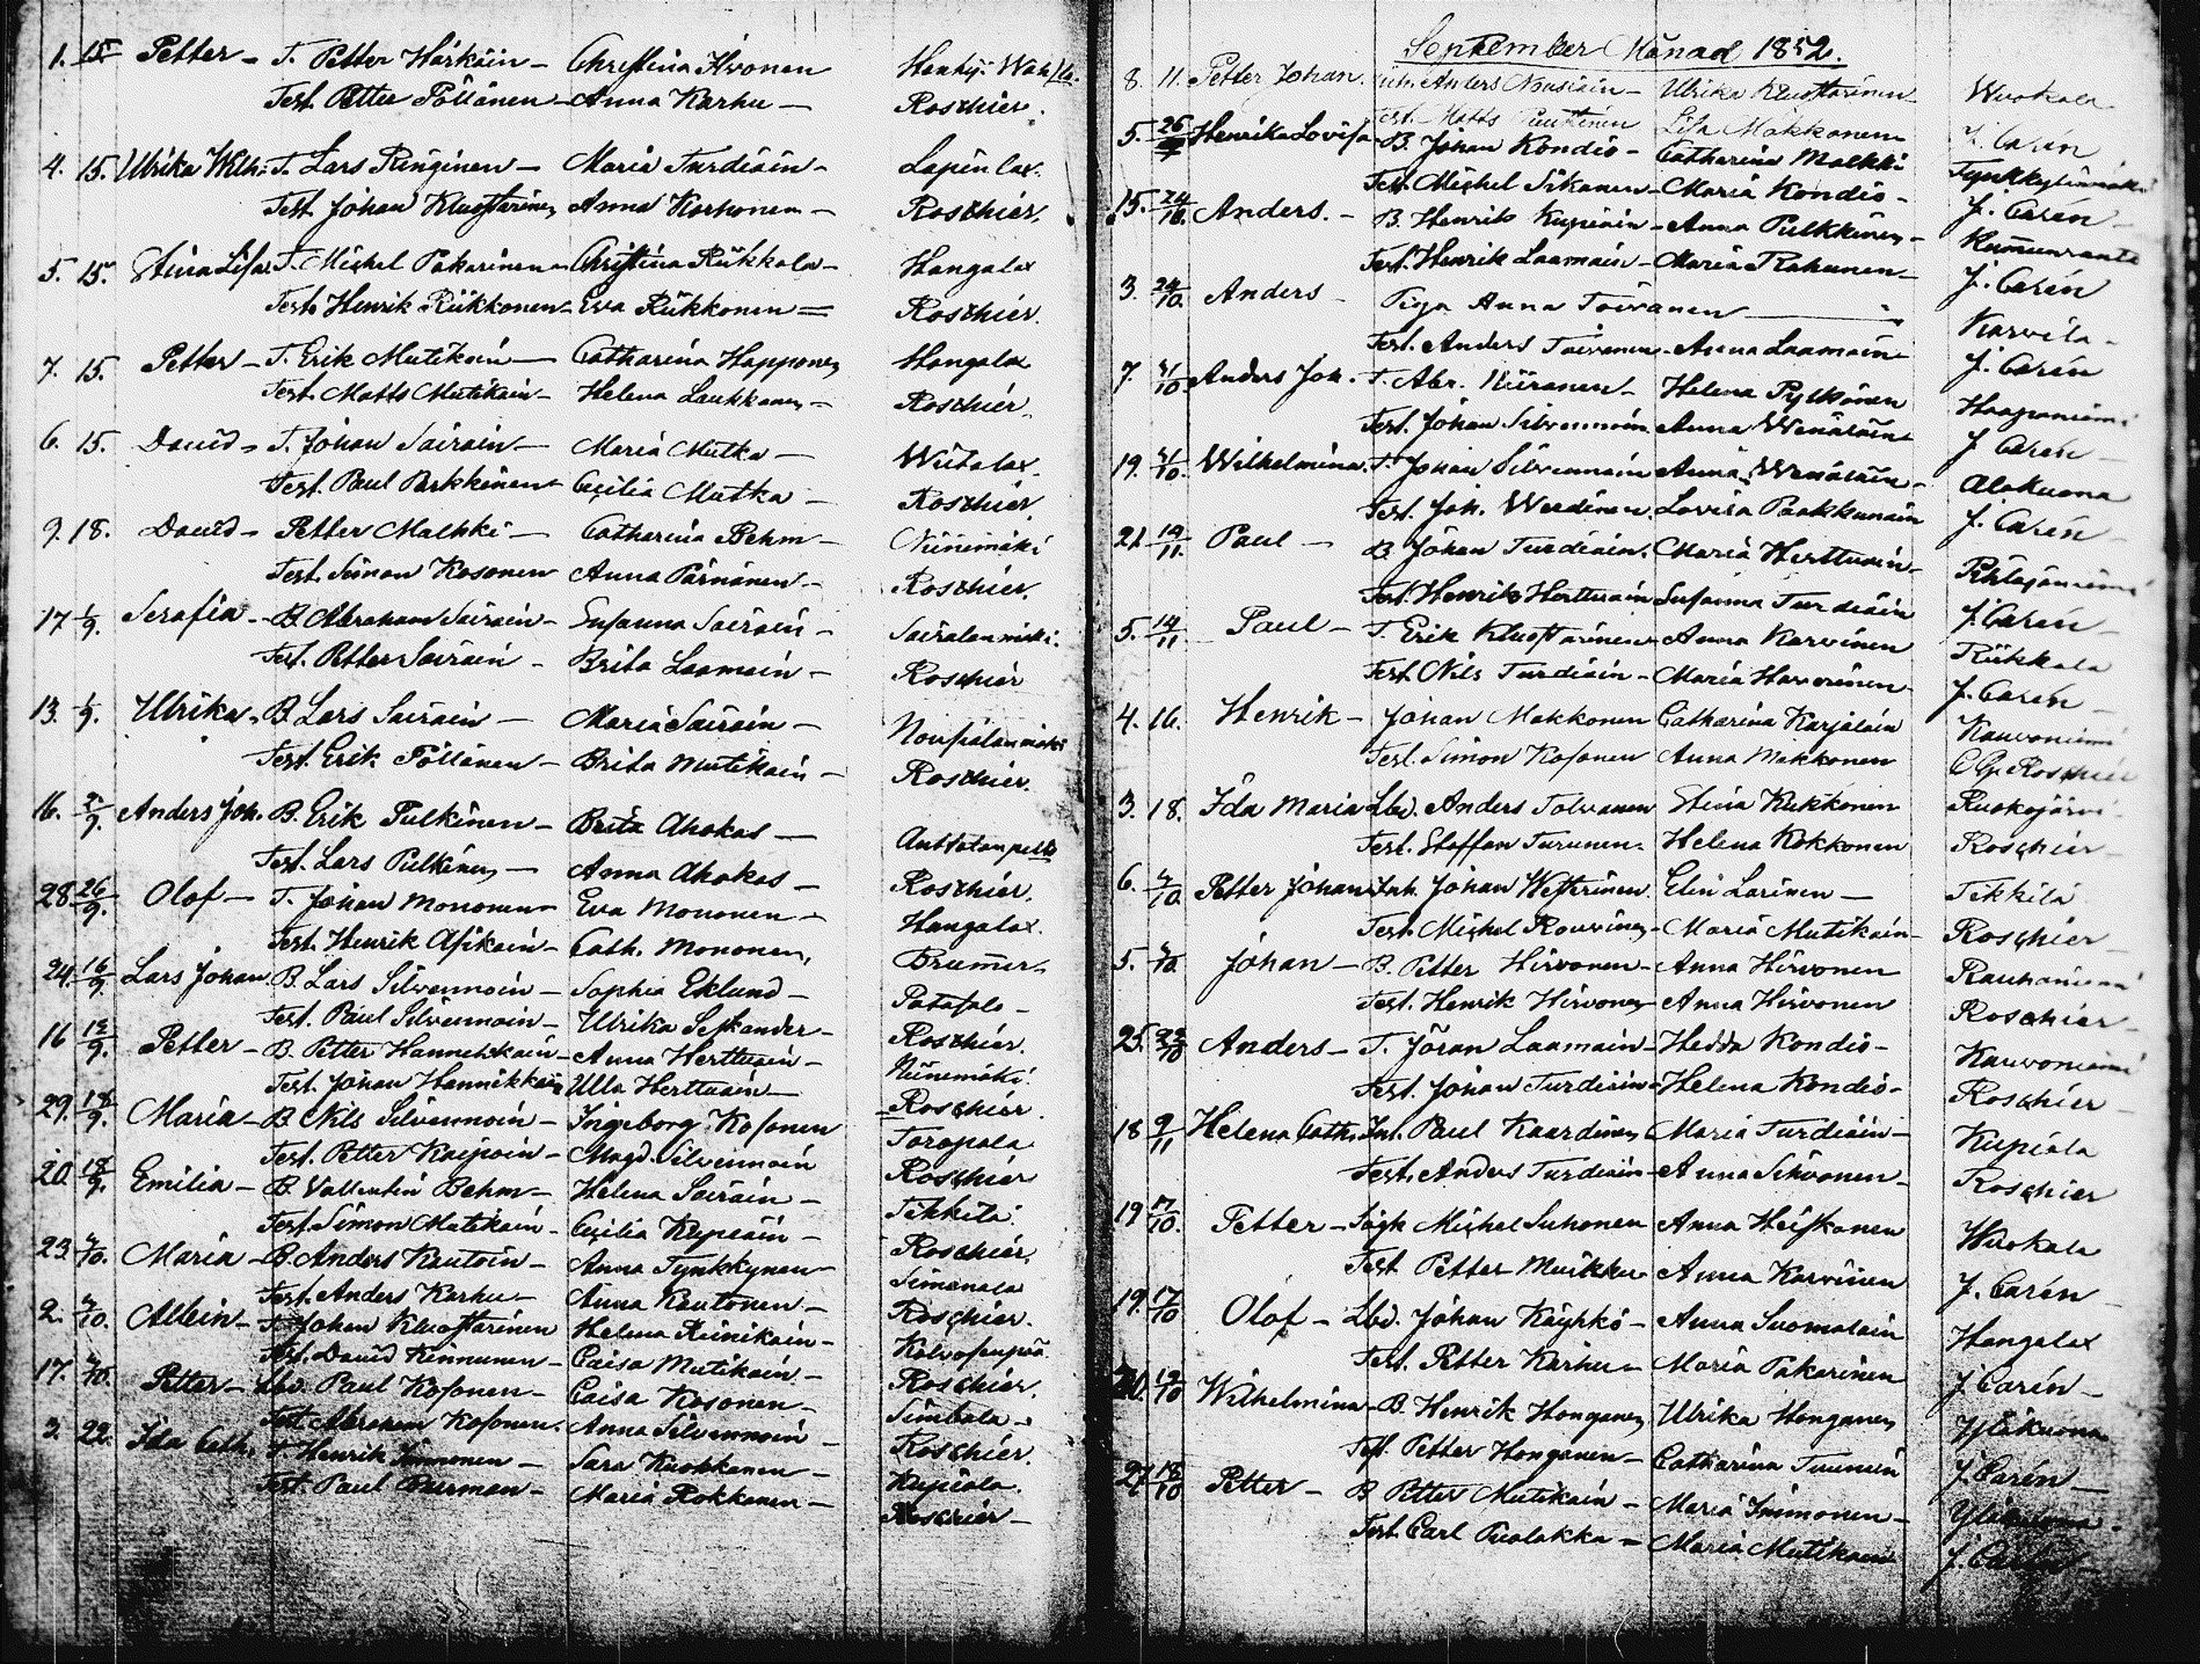 1. 15 Petter - T. Petter Härkäin - Christina Hvonen
Test. Petter Pöllänen - Anna Karhu - Roschier.
4. 15. Ulrika Wilh: T. Lars Ringinen - Maria Turdiain - Lapinlax.
Test. Johan Kluostarinen Anna Korhonen - Roschier.
5. 15. Stina Lisa T. Michel Pakarinen - Christina Rükkola - Hangalax
Test. Henrik Rükkonen - Eva Rükkonen = Roschier.
7. 15. Petter - T. Erik Mutikain - Catharina Happonen Hangalax
Test. Matts Mutikain - Helena Laukkanen - Roschier.
6. 15. David - T. Johan Sairain - Maria Mutka - Wiitalax.
Test. Paul Parkkinen - Cecilia Mutka - Roschier.
9. 18. David - Petter Malkki - Catharina Behm - Niinimäki
Test. Simon Kosonen Anna Pärnänen - Roschier.
17 1/9. Serafia - B. Abraham Sairain - Susanna Sairain - Sairalanmäki.
Test. Petter Sairain - Brita Laamain - Roschier
13. 1/9. Ulrika - B. Lars Sairain - Maria Sairain -
Test. Erik Pöllänen - Brita Mutikain - Roschier.
16. 2/9. Anders Joh. B. Erik Pulkinen - Brita Ahokas -
Test. Lars Pulkinen - Anna Ahokas - Roschier.
28 26/9. Olof - T. Johan Mononen - Eva Mononen - Hangalax.
Test. Henrik Asikain - Cath. Mononen, Brummer -
24. 16/9. Lars Johan B. Lars Silvennoin - Sophia Eklund - Patasalo -
Test. Paul Silvennoin - Ulrika Seskander - Roschier.
16 12/9. Petter - B. Petter Hannikkain - Anna Herttuain - Niinimäki.
Test. Johan Hannikkain Ulla Herttuain - Roschier.
29. 18/9. Maria - B. Nils Silvennoin - Ingeborg Kosonen Toropala
Test. Petter Kaipain - Magd. Silvennoin Roschier
20. 18/9. Emilia - B. Vallentin Behm - Helena Sairain - Tikkila.
Test. Simon Mutikain - Cecilia Kupiain - Roschier,
23. Maria - B. Anders Kautoin - Anna Tynkkynen Simanala
Test. Anders Karhu - Anna Kautonen - Roschier.
2. Albin - T. Johan Kluostarinen Helena Reinikain -
Test. David Kinnunen - Caisa Mutikain - Roschier.
17. Petter - Lbd. Paul Kosonen - Caisa Kosonen - Simbala -
Test. Abraham Kosonen. Anna Silvennoin - Roschier.
3. 22. Ida Cath. T. Henrik Immonen - Sara Kuokkanen - Kupiala.
Test. Paul Burman - Maria Kokkonen - Roschier -
September Månad 1852.
8. 11. Petter Johan. Inh. Anders Nousiain - Ulrika Kluostarinen Wuokala
Test. Matts Puustinen Lisa Makkonen J. Carén
5. 26 Henrika Lovisa B. Johan Kondio - Catharina Malkki
Test. Michel Sikanen - Maria Kondio - J. Carén
15. 24/10. Anders. - B. Henrik Kupiain - Anna Pulkkinen - Kummunranta
Test. Henrik Laamain - Maria Rahunen - J. Carén
3. 24/10. Anders - Piga Anna Toivanen - Karvila -
Test. Anders Toivanen - Anna Laamain - J. Carén
7. Anders Joh. T. Abr. Niiranen - Helena Pylkönen Haapaniemi
Test. Johan Silvennoin Anna Wenäläin J. Carén -
19. Wilhelmina. T. Johan Silvennoin Anna Wenäläin - Alakuona
Test. Joh. Werdinen. Lovisa Paakkunain J. Carén -
21. 19/11. Paul - B. Johan Turdiain. Maria Herttuain - Pihlajaniemi
Test. Henrik Herttuain Susanna Turdiain J. Carén -
5. 14/11 Paul - T. Erik Kluostarinen - Anna Karvinen Riikkala
Test. Nils Turdiain - Maria Haverinen J. Carén -
4. 16. Henrik - Johan Makkonen Catharina Karjalain Kauvoniemi
Test. Simon Kosonen Anna Makkonen C G. Roschier
3. 18. Ida Maria Lbd. Anders Tolvanen Stina Kukkonen Ruokojärvi
Test. Staffan Turunen. Helena Kokkonen Roschier -
6. Petter Johan Inh. Johan Westerinen. Elin Larinen - Tikkila
Test. Michel Rouvinen - Maria Mutikain - Roschier -
5. Johan - B. Petter Hirvonen - Anna Hirvonen Rauhaniemi
Test. Henrik Hirvonen Anna Hirvonen Roschier -
25. Anders - T. Jöran Laamain - Hedda Kondio - Kauvoniemi
Test. Johan Turdiain - Helena Kondio - Roschier -
18 9/11 Helena Cath. Inh. Paul Kaardinen Maria Turdiain - Kupiala
Test. Anders Turdiain - Anna Sihvonen - Roschier
19 17/10. Petter - Michel Suhonen Anna Heiskanen Wuokala
Test. Petter Muikku - Anna Karvinen J. Carén -
19. 17/10 Olof - Lbd. Johan Käyhkö - Anna Suomalain Hangalax
Test. Petter Karhu - Maria Pakarinen J. Carén -
20. 19/10 Wilhelmina - B. Henrik Honganen Ulrika Honganen Yläkuona
Test. Petter Honganen - Catharina Tuunain J. Carén -
27 18/10 Petter - B. Petter Mutikain - Maria Immonen - Yläkuona -
Test. Carl Puolakka - Maria Mutikain J. Carén